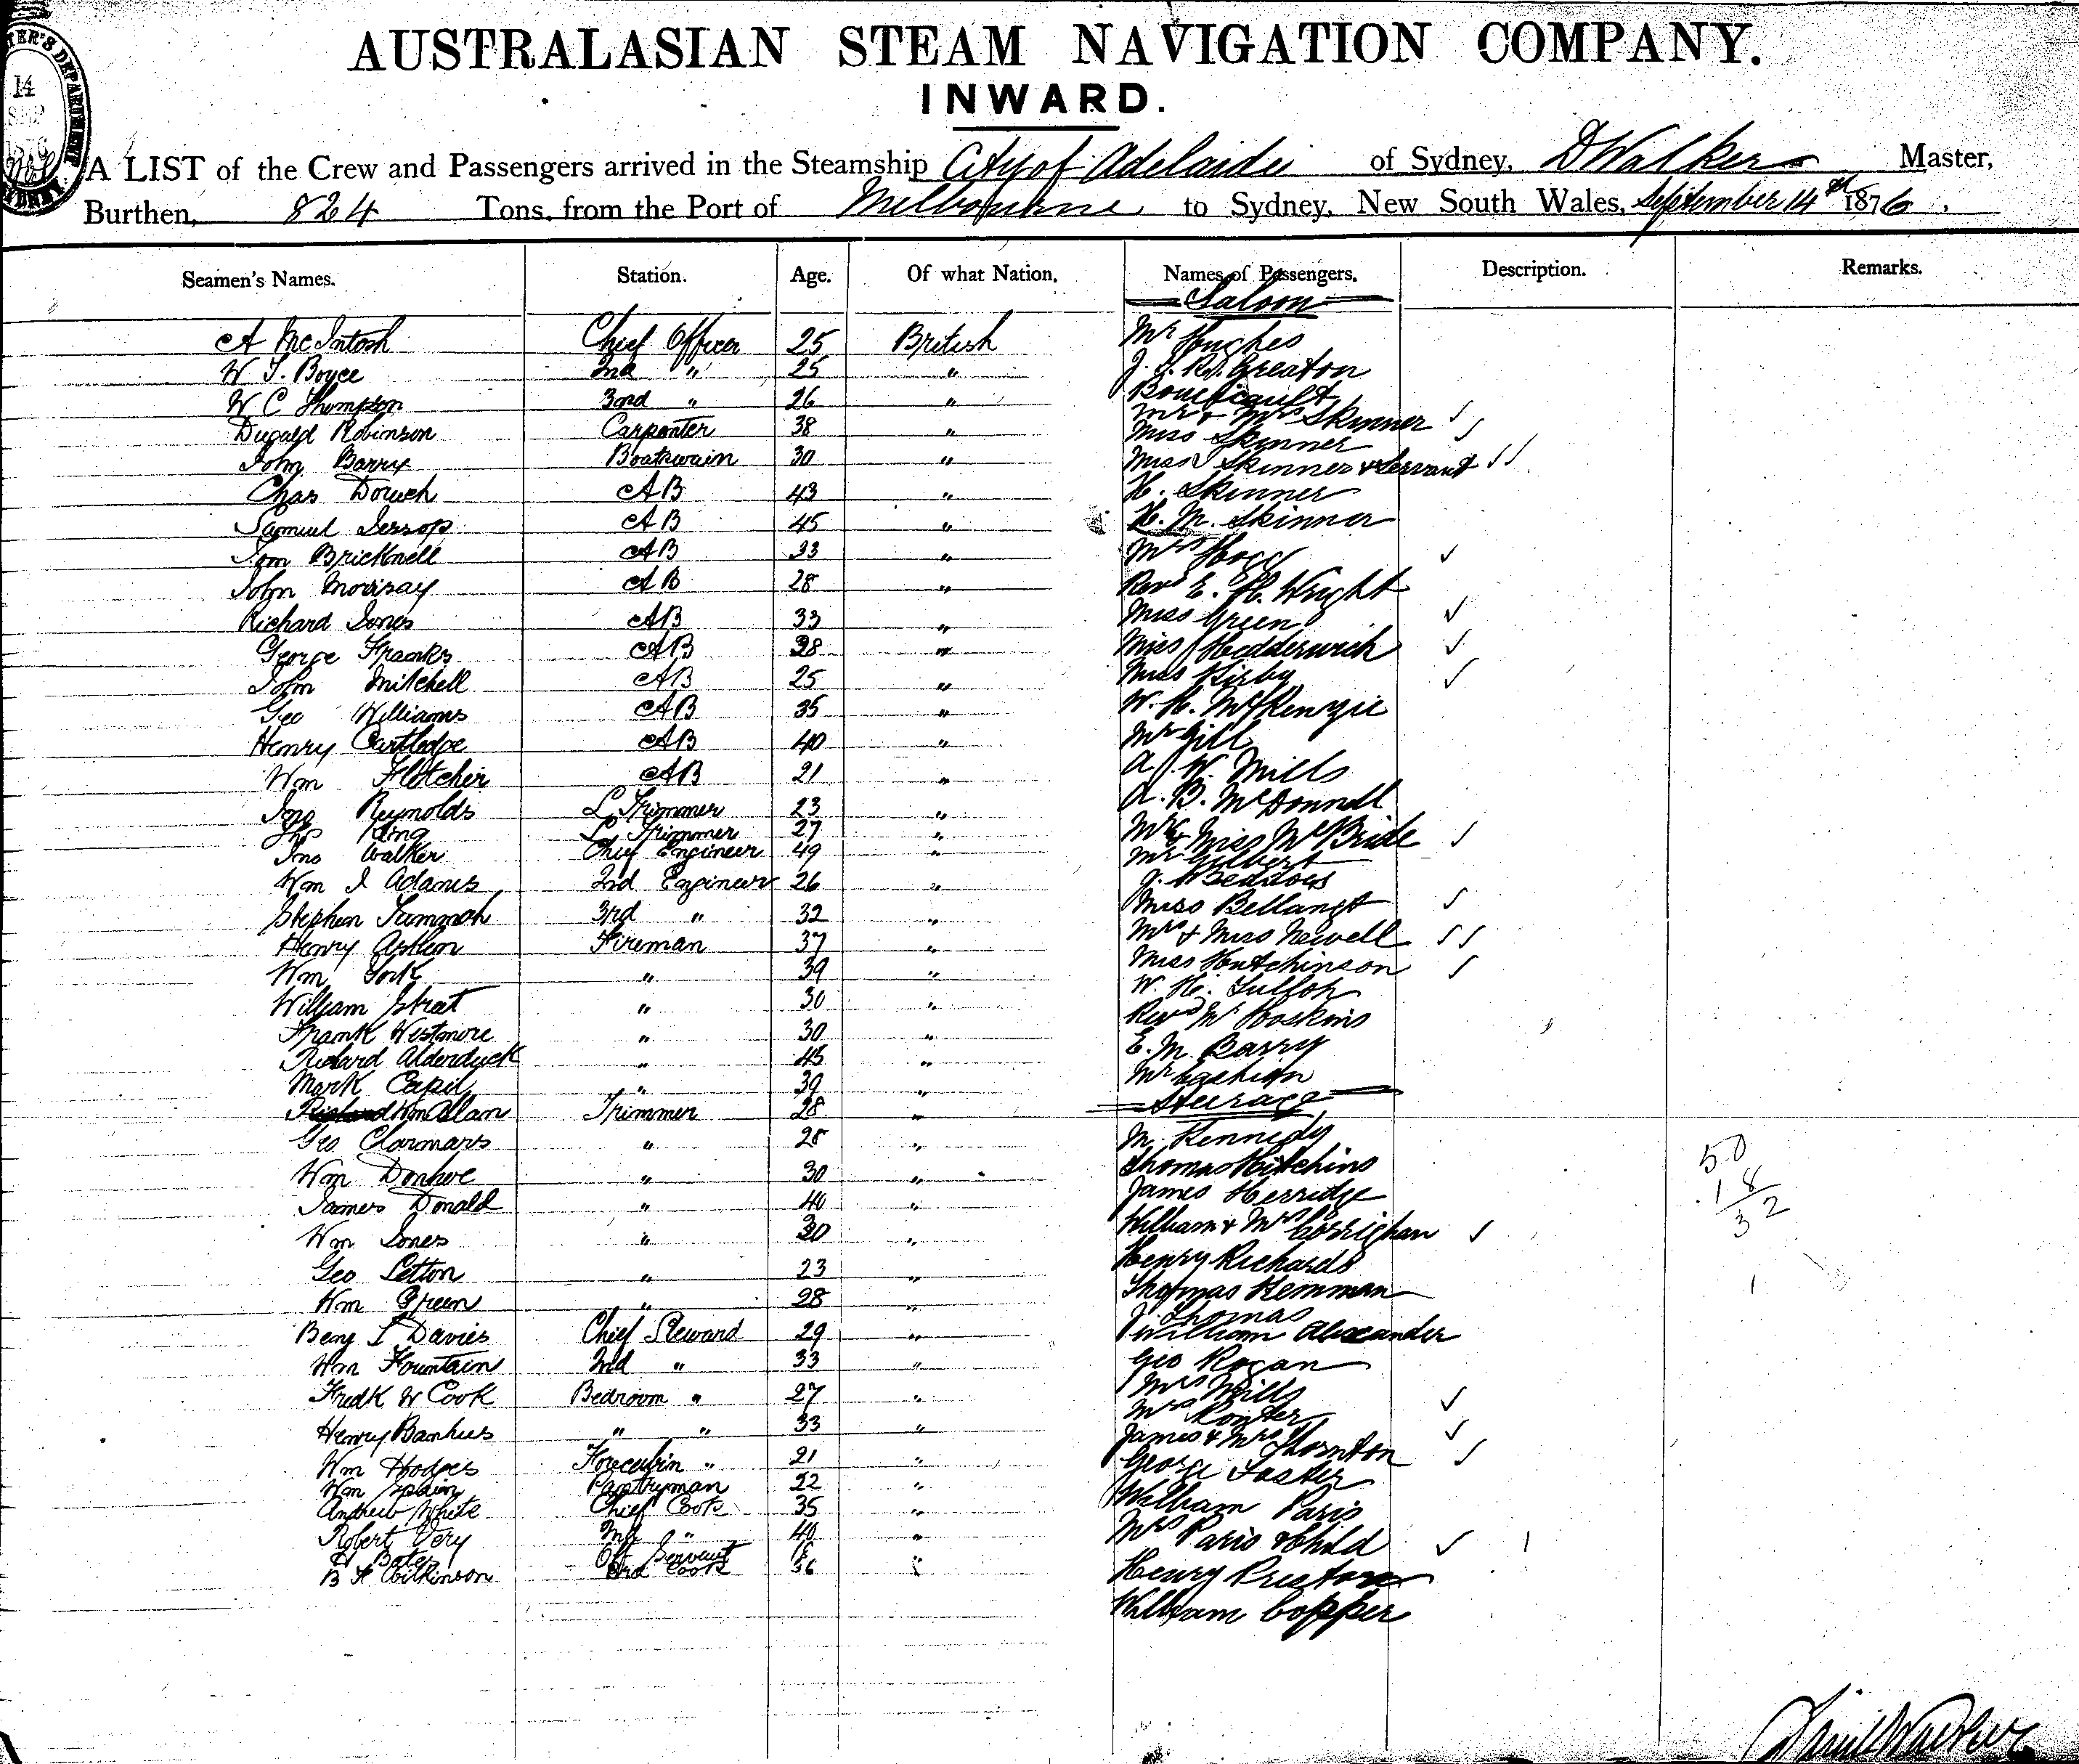 AUSTRALASIAN STEAM NAVIGATION COMPANY.
INWARD.
14
SEP
1876
A LIST of the Crew and Passengers arrived in the Steamship City of Adelaide of Sydney, D Walker Master,
Burthen, 824 Tons, from the Port of Melbourne to Sydney, New South Wales, September 14th 1876.
Seamen's Names. Station. Age. Of what Nation, Names of Passengers. Description. Remarks.
Saloon
A McIntosh Chief Officer 25 British Mr Hughes
W T. Boyce 2nd " 25 " J. J. R. Greaton
W C Thompson 3rd " 26 " Boucicault
Dugald Robinson Carpenter 38 " Mr & Mrs Skinner
Miss Skinner
John Barry Boatswain 30 " Miss Skinner & Servant
Chas Dorich AB 43 " H. Skinner
Samuel Jessop AB 45 " H. M. Skinner
Tom Bricknell AB 33 " Mrs Hogg
John Morisay AB 28 " Revd E. H. Wright
Richard Jones AB 33 " Miss Green
George Franks AB 38 " Miss Hedderwich
John Mitchell AB 25 " Miss Kirby
Geo Williams AB 35 " W. H. McKenzie
Henry Cartledge AB 40 " Mr Gill
Wm Fletcher AB 21 " A. W. Mills
Jno Reynolds L Trimmer 23 " A. B. McDonnell
Jno King L Trimmer 27 " Mr & Miss McBride
Jno Walker Chief Engineer 49 " Mr Gilbert
Wm J Adams 2nd Engineer 26 " J. Beddoes
Stephen 3rd " 32 " Miss
Henry Fireman 37 " Mrs & Miss Newell
Wm York " 39 " Miss Hutchinson
William Strat " 30 " W. H.
Frank Westmore " 30 " Revd Mr Hoskins
Richard Alderduck " 45 " E. M. Barry
Mark Capil " 39 " Mr
Steerage
Wm Allan Trimmer 28 "
Geo " 28 " M. Kennedy
Wm Donhoe " 30 " Thomas Hitchins
James Donald " 40 " James Herridge
Wm Jones " 30 " William & Mrs Corrighan
Geo Letton " 23 " Henry Richards
Wm Green " 28 " Thomas Hemman
J. Thomas
Benj T Davies Chief Steward 29 " William Alexander
Wm Fountain 2nd " 33 " Geo Rogan
Fredk W Cook Bedroom " 27 " Mrs Mills
Mrs
Henry Bankus " " 33 " James & Mrs Thornton
Wm Hodges Forecabin " 21 " George Foster
Wm Spain Pantryman 22 "
Andrew White Chief Cook 35 " William Paris
Robert Very 2nd " 40 " Mrs Paris & Child
H Bates Off Servant 18 "
B F Wilkinson 3rd Cook 36 " Henry Preston
William Copper
50
18
32